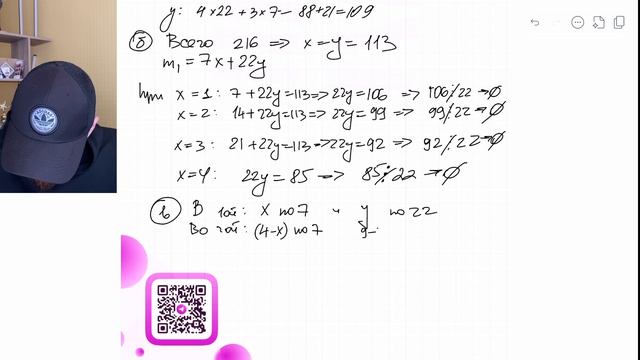 y: 4×22 + 3×7 – 88+21=109
б Всего 216 => x=y=113
m₁=7x+22y
при x=1: 7+22y=113=>22y=106 => 106/22 → ∅
x=2: 14+22y=113=>22y=99 => 99/22 → ∅
x=3: 21+22y=113=>22y=92 => 92/22 → ∅
x=4: 22y=85 => 85/22 → ∅
в В 1ой: x по 7 и y по 22
Во 2ой: (4-x) по 7